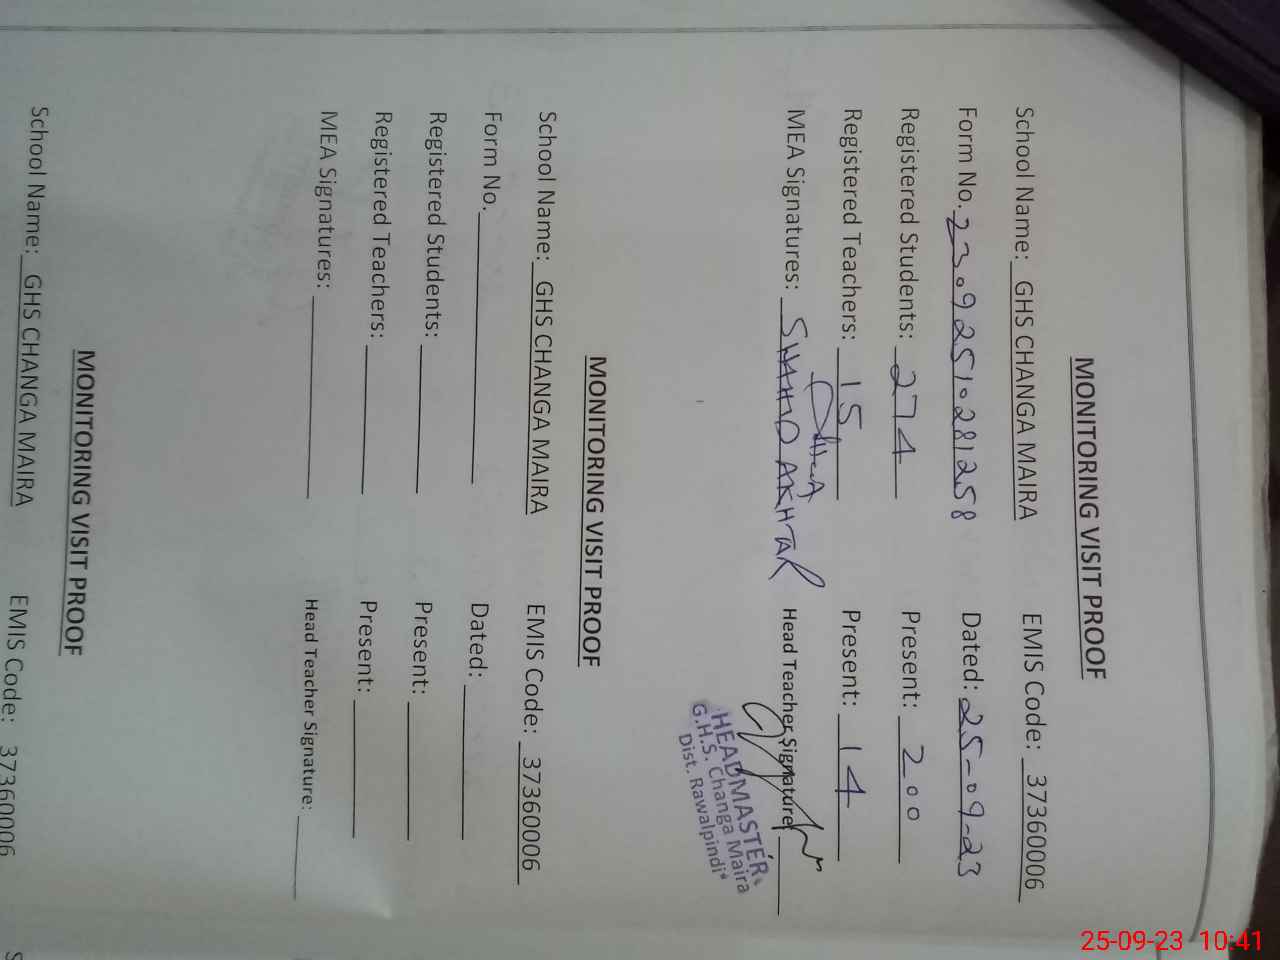 MONITORING VISIT PROOF
School Name: GHS CHANGA MAIRA EMIS Code: 37360006
Form No. 23092510281258 Dated: 25-09-23
Registered Students: 274 Present: 200
Registered Teachers: 15 Present: 14
MEA Signatures: SHAHID AKHTAR Head Teacher Signature:
HEADMASTER
G.H.S. Changa Maira
Dist. Rawalpindi
MONITORING VISIT PROOF
School Name: GHS CHANGA MAIRA EMIS Code: 37360006
Form No. Dated:
Registered Students: Present:
Registered Teachers: Present:
MEA Signatures: Head Teacher Signature:
MONITORING VISIT PROOF
School Name: GHS CHANGA MAIRA EMIS Code: 37360006
25-09-23 10:41